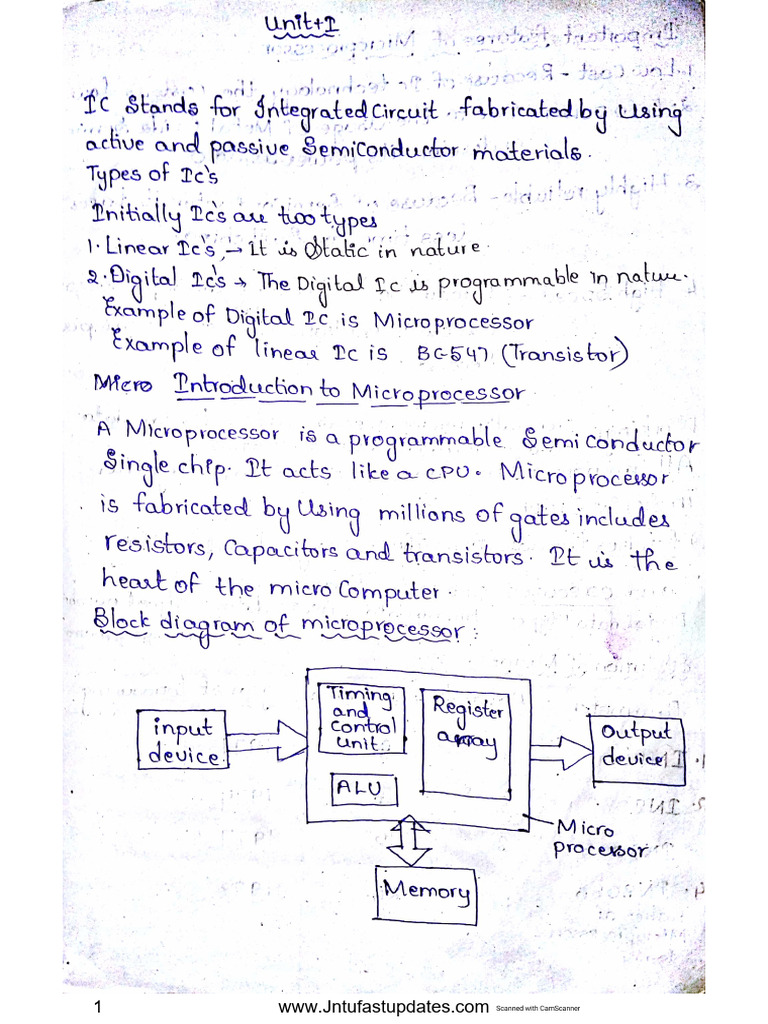 Unit+I
IC Stands for Integrated Circuit. fabricated by Using
active and passive SemiConductor materials.
Types of Ic's
Initially Ic's are two types
1. Linear Ic's, → It is Static in nature.
2. Digital Ic's → The Digital Ic is programmable in nature.
Example of Digital IC is Microprocessor
Example of linear Ic is BC-547 (Transistor)
Micro Introduction to Microprocessor
A Microprocessor is a programmable Semi conductor
Single chip. It acts like a CPU. Microprocessor
is fabricated by Using millions of gates includes
resistors, Capacitors and transistors. It is the
heart of the micro Computer.
Block diagram of microprocessor:
Timing
and
Control
unit
Register
array
input
device
Output
device
ALU
Micro
processor
Memory
1
www.Jntufastupdates.com
Scanned with CamScanner